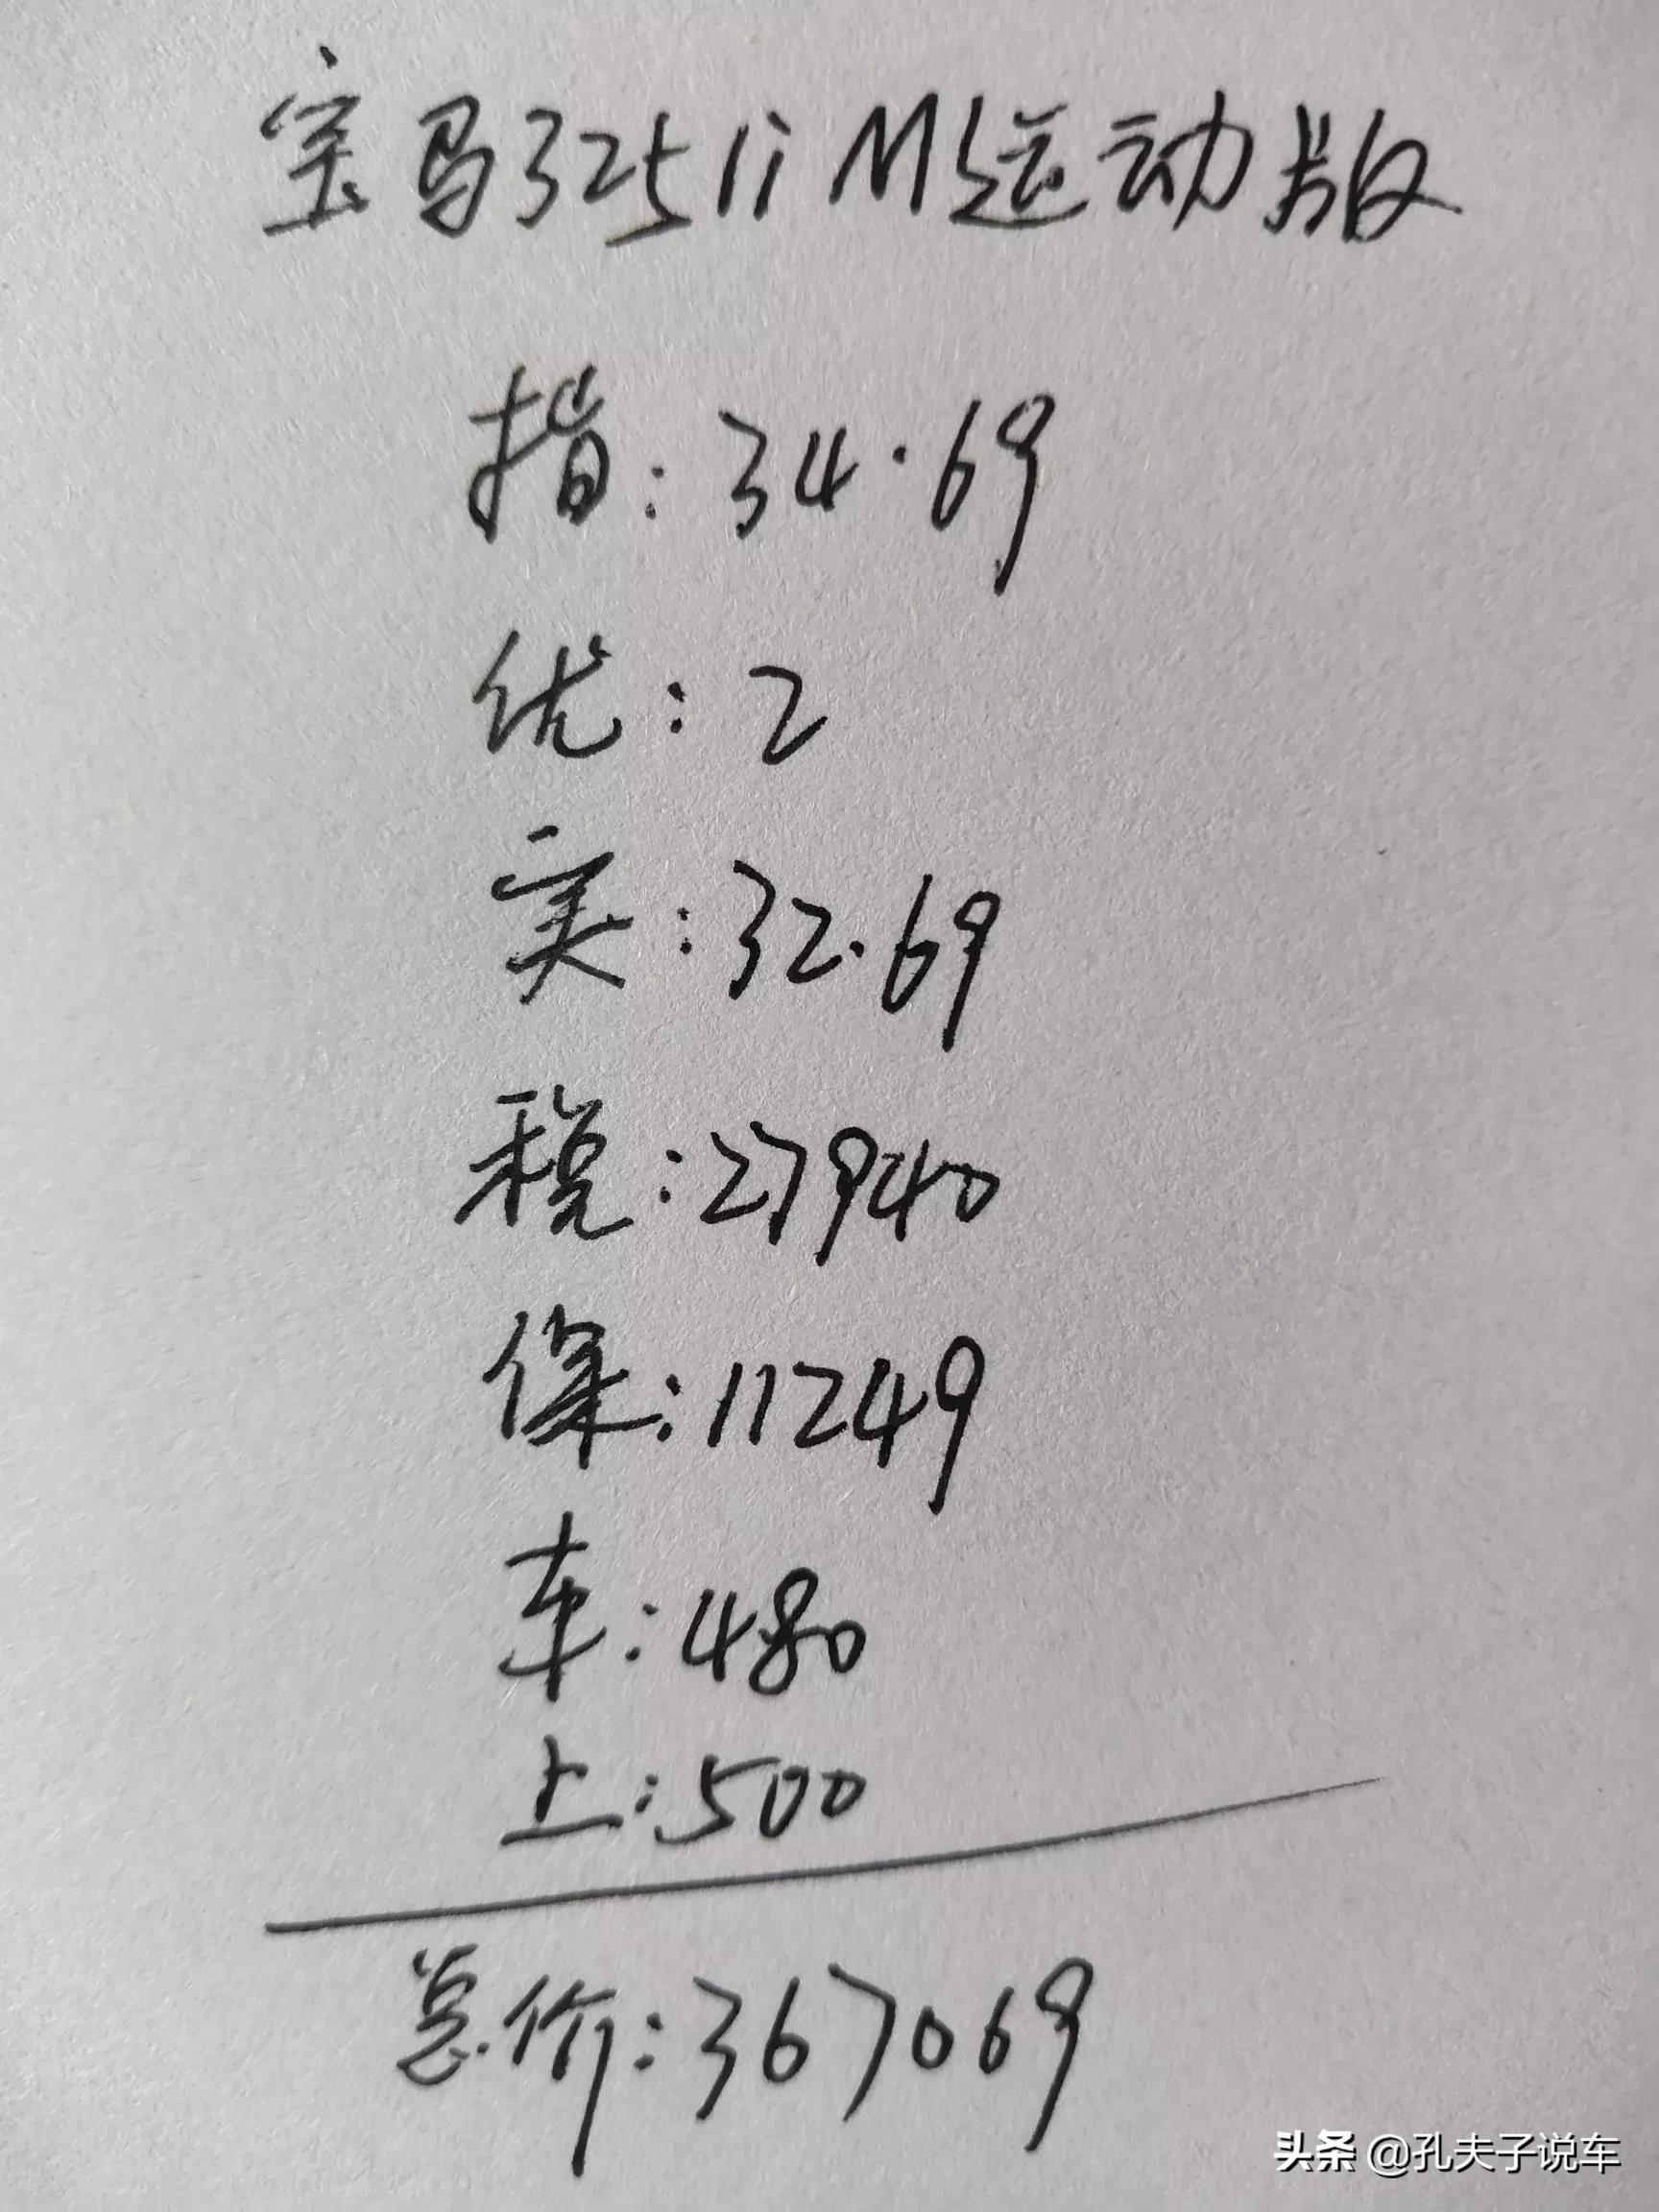 宝马325li M运动版
指:34.69
优:2
实:32.69
税:27940
保:11249
车:480
上:500
总价:367069
头条 @孔夫子说车